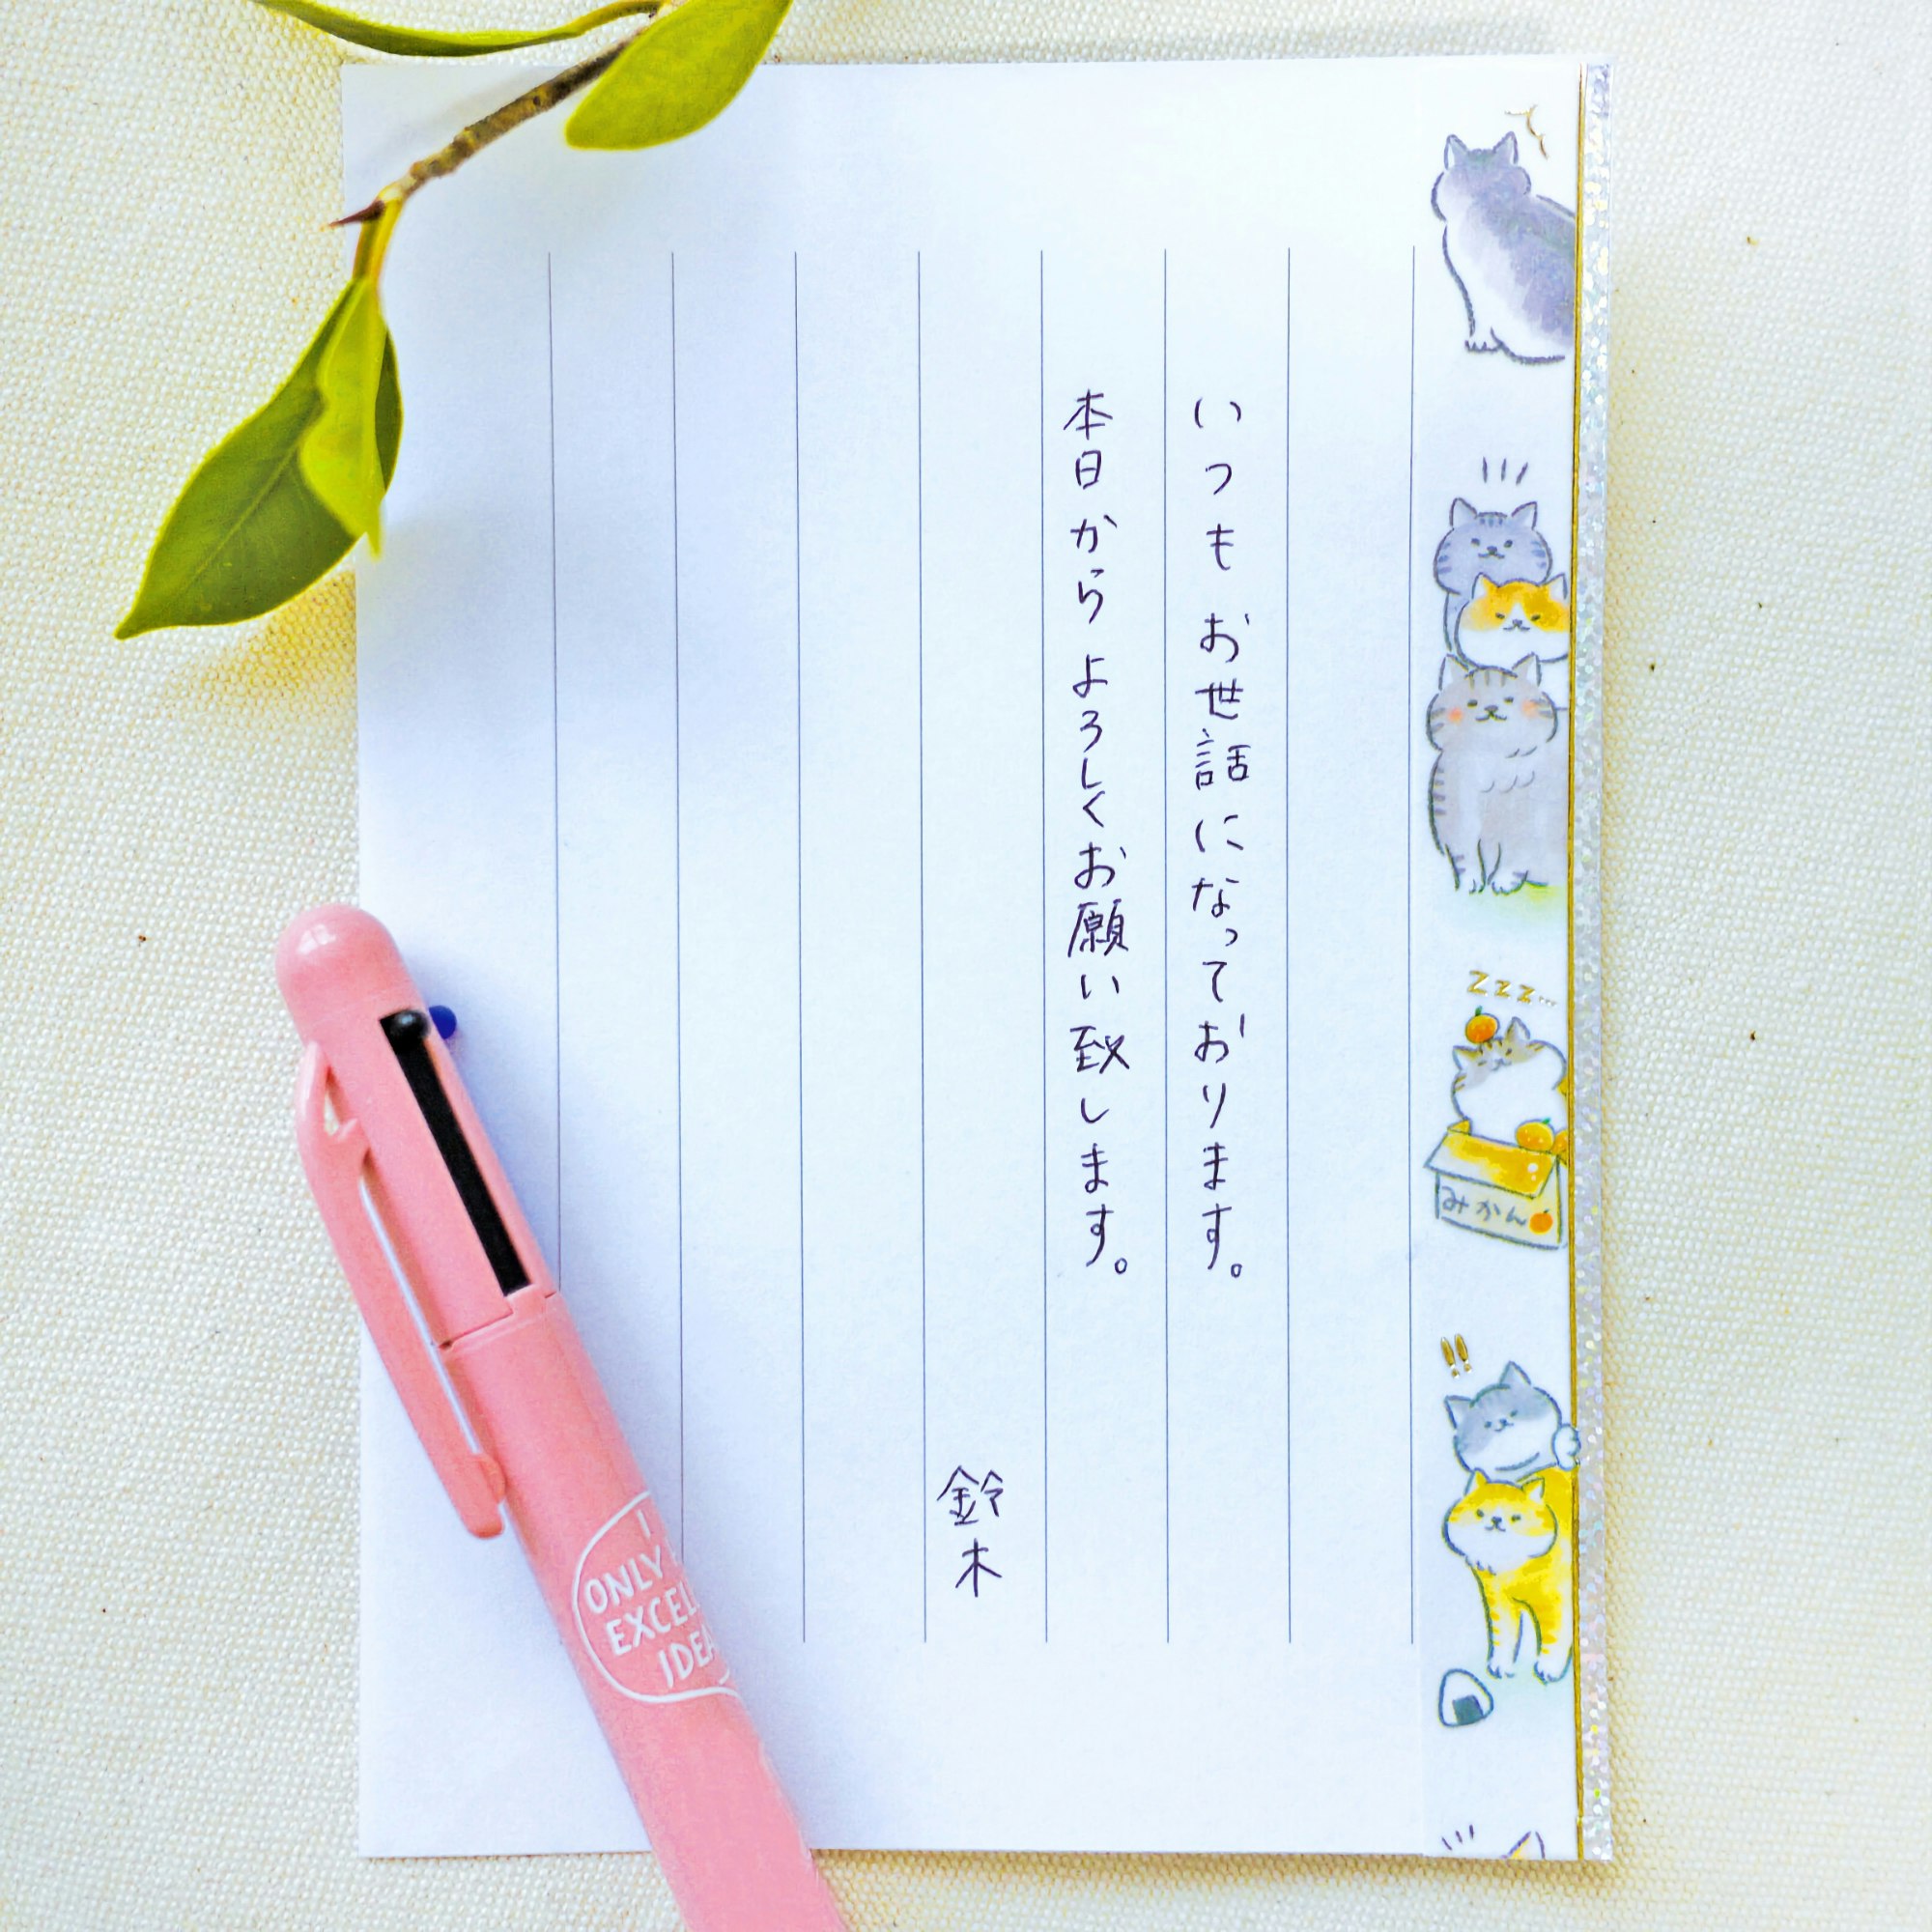 いつもお世話になっております。
本日からよろしくお願い致します。
鈴木
zzz...
みかん
!!
I
ONLY
IDEA